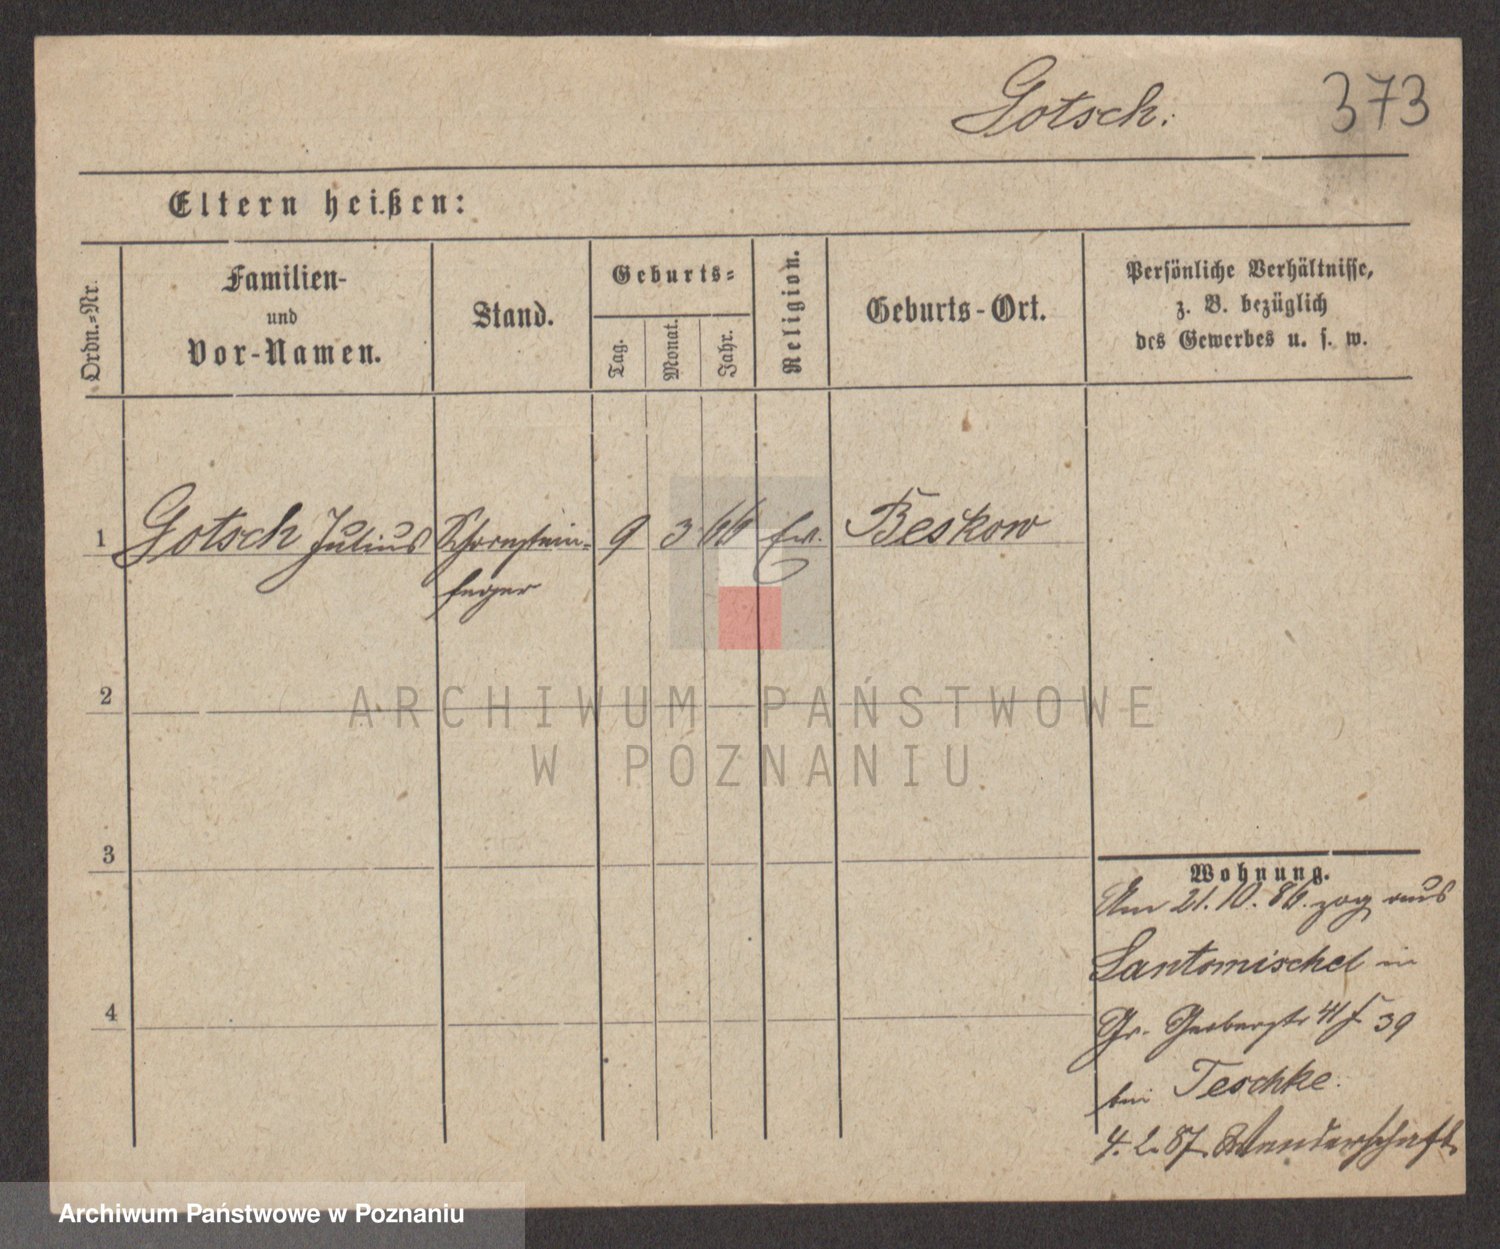 Gotsch. 373
Eltern heißen:
Ordn.-Nr.
Familien-
und
Vor-Namen.
Stand.
Geburts-
Tag.
Monat.
Jahr.
Religion.
Geburts-Ort.
Persönliche Verhältnisse,
z. B. bezüglich
des Gewerbes u. s. w.
1 Gotsch Julius Schornstein- 9 3 66 Ev. Beskow
feger
2
3
4
Wohnung.
Am 21.10.86. zog aus
Santomischel in
Gr. Gerberstr 41 f 39
bei Teschke.
4. 2. 87. Wanderschaft
ARCHIWUM PAŃSTWOWE
W POZNANIU
Archiwum Państwowe w Poznaniu